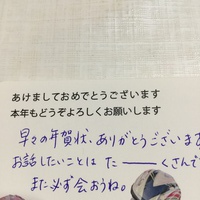 あけましておめでとうございます
本年もどうぞよろしくお願いします
早々の年賀状、ありがとうございます
お話したいことは たーーーくさんで
また必ず会おうね。